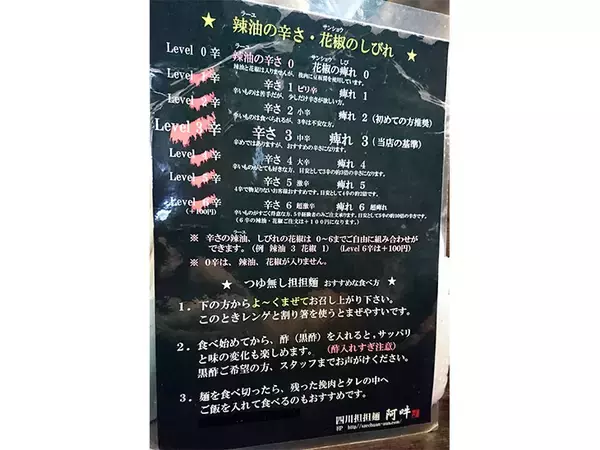 ★ 辣油の辛さ・花椒のしびれ ★
ラーユ サンショウ
Level 0 辛 辣油の辛さ 0 花椒の痺れ 0
ラーユ サンショウ しび
辣油と花椒は入りませんが、挽肉に豆板醤を使用しています。
Level 1 辛 辛さ 1 ピリ辛 痺れ 1
辛いものは苦手だが、少しだけ辛さが欲しい方。
Level 2 辛 辛さ 2 小辛 痺れ 2 (初めての方推奨)
辛いものは食べられるが、3辛は不安な方。
Level 3 辛 辛さ 3 中辛 痺れ 3 (当店の基準)
辛めではありますが、おすすめの辛さになります。
Level 4 辛 辛さ 4 大辛 痺れ 4
辛いものがとても好きな方、目安として3辛の約2倍の辛さです。
Level 5 辛 辛さ 5 激辛 痺れ 5
4辛で物足りないお客様おすすめです。目安として4辛の約2倍です。
Level 6 辛 辛さ 6 超激辛 痺れ 6 超痺れ
(+100円) 辛いものがすごく得意な方、5辛経験者のみご注文承ります。目安として5辛の約10倍の辛さです。
(6辛の辣油・花椒ご注文は+100円になります。)
※ 辛さの辣油、しびれの花椒は 0~6までご自由に組み合わせが
できます。(例 辣油 3 花椒 1) (Level 6辛は+100円)
※ 0辛は、辣油、花椒が入りません。
★ つゆ無し担担麺 おすすめな食べ方 ★
1. 下の方からよ~くまぜてお召し上がり下さい。
このときレンゲと割り箸を使うとまぜやすいです。
2. 食べ始めてから、酢(黒酢)を入れると、サッパリ
と味の変化も楽しめます。 (酢入れすぎ注意)
黒酢ご希望の方、スタッフまでお声がけください。
3. 麺を食べ切ったら、残った挽肉とタレの中へ
ご飯を入れて食べるのもおすすめです。
四川担担麺 阿吽
HP http://szechuan-aun.com/